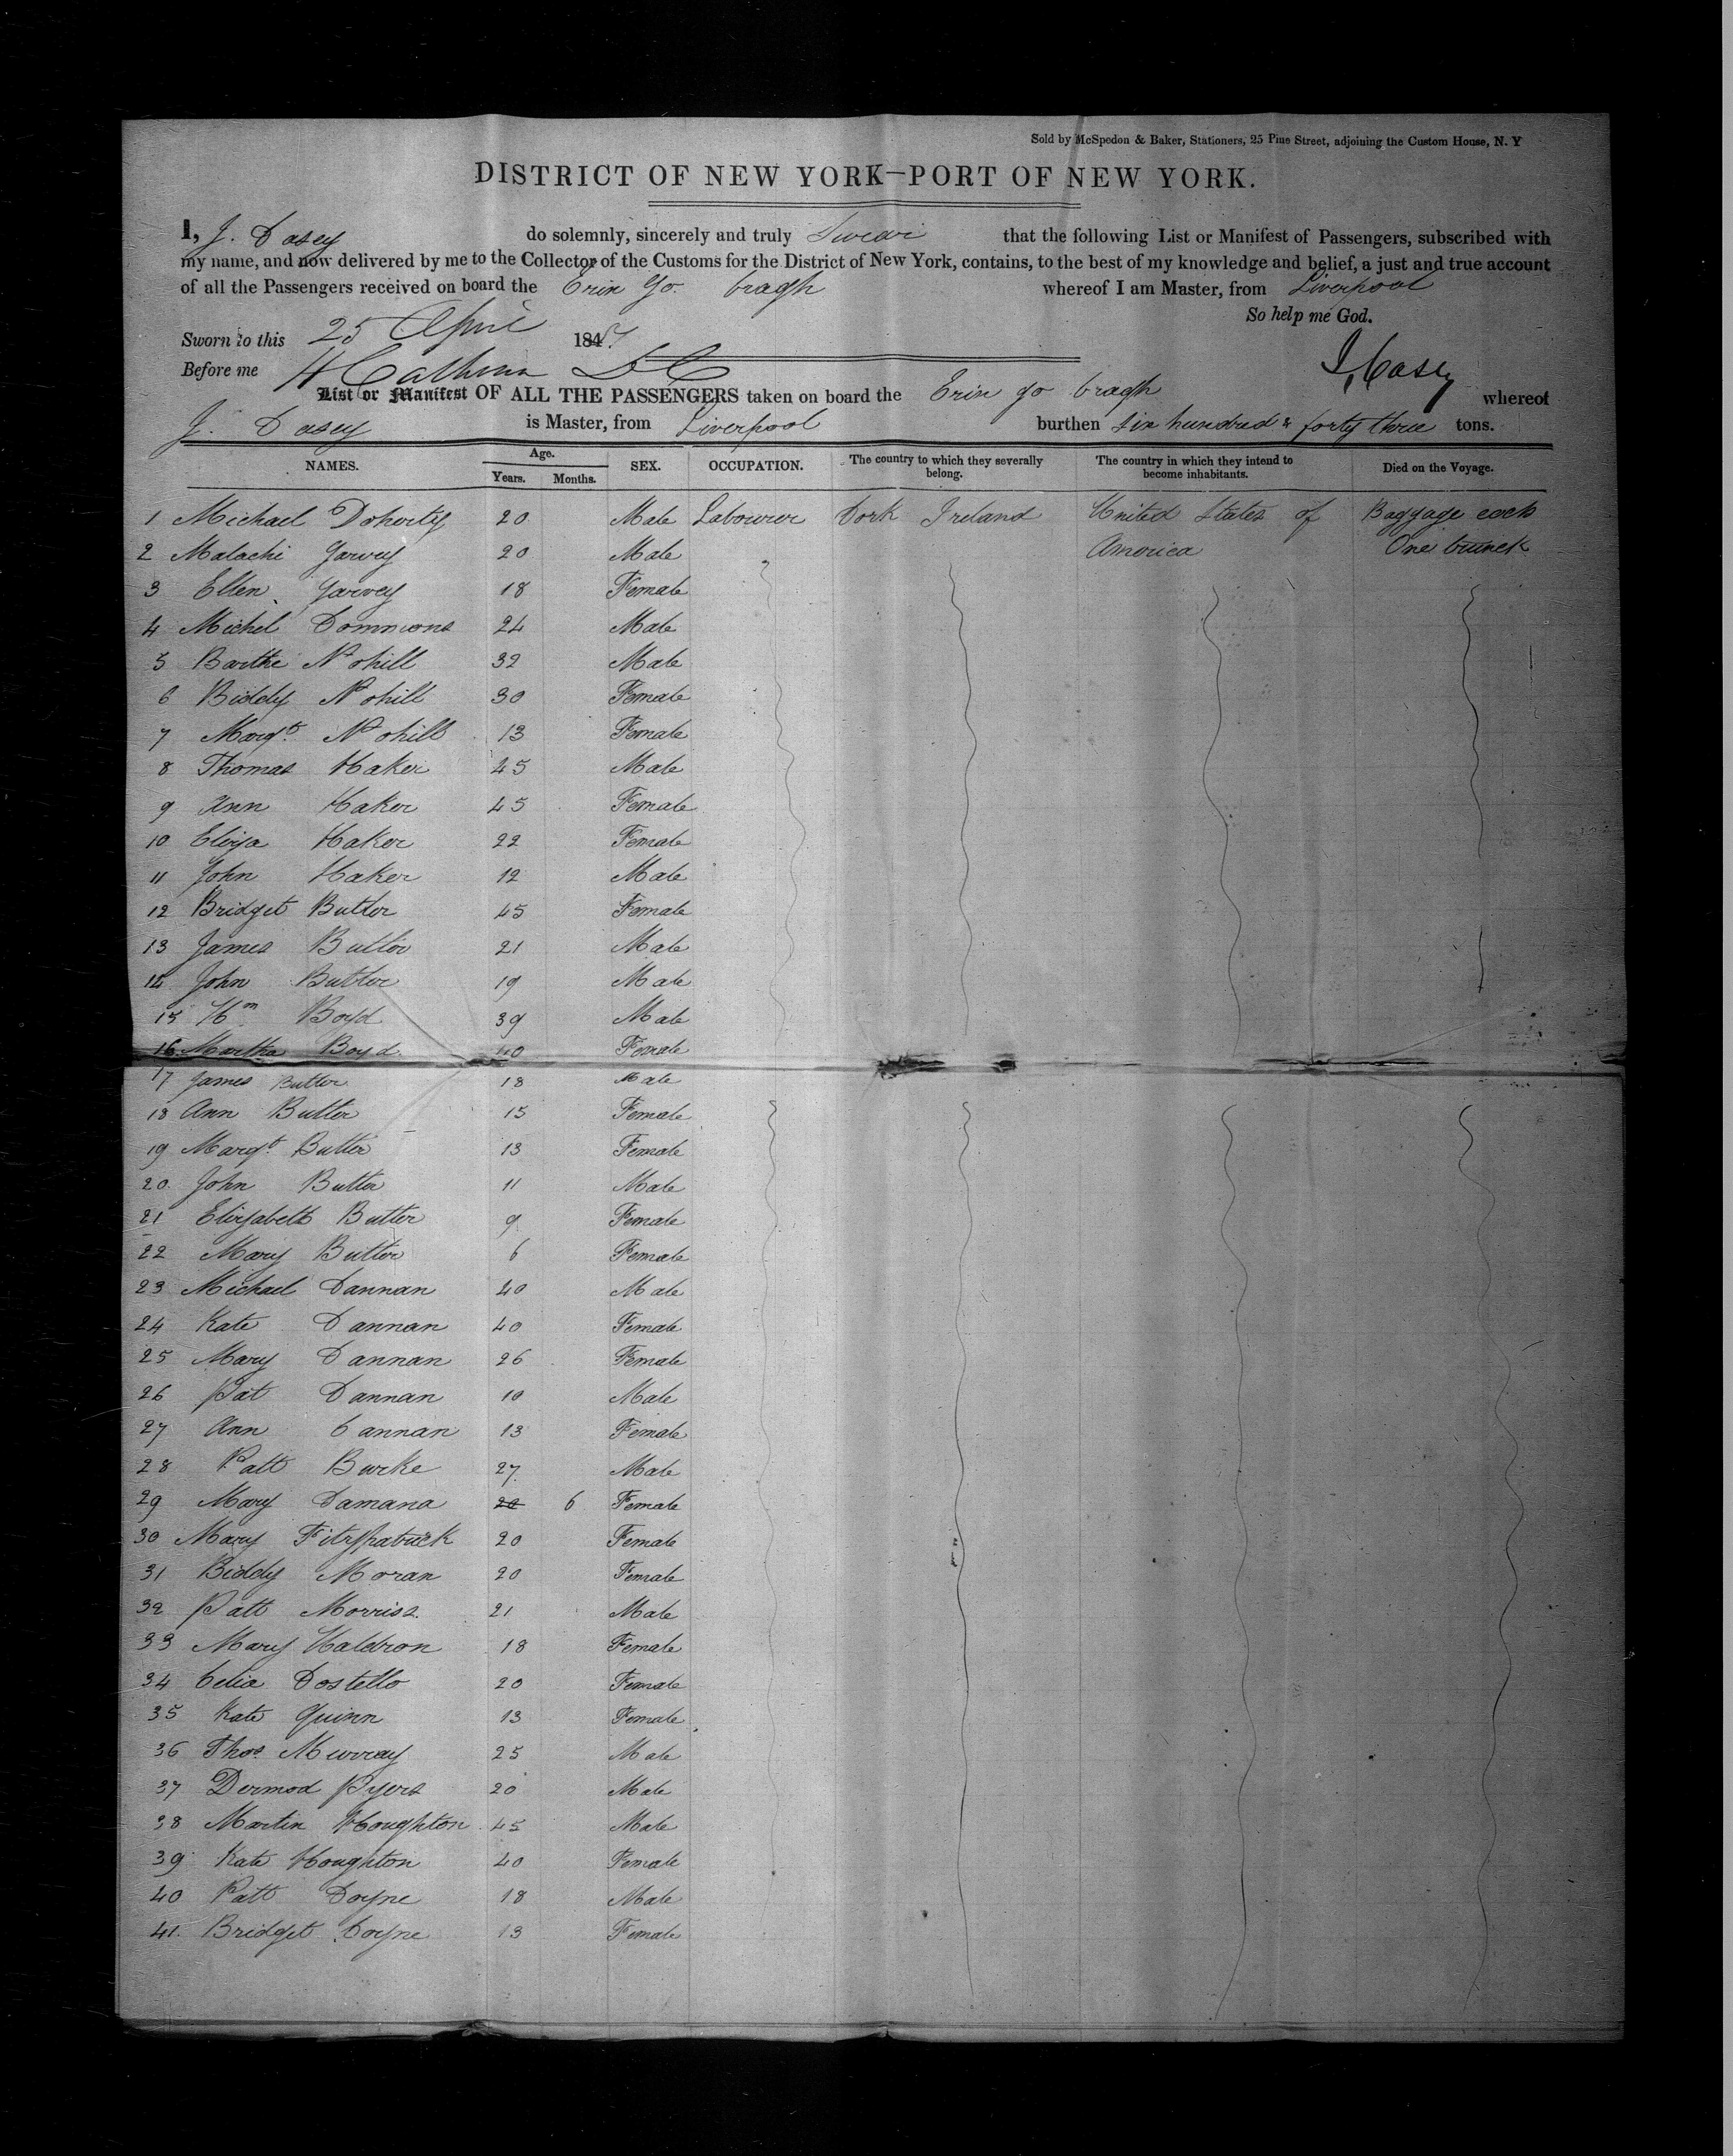 Sold by McSpedon & Baker, Stationers, 25 Pine Street, adjoining the Custom House, N. Y
DISTRICT OF NEW YORK—PORT OF NEW YORK.
I, J. Casey do solemnly, sincerely and truly Swear that the following List or Manifest of Passengers, subscribed with
my name, and now delivered by me to the Collector of the Customs for the District of New York, contains, to the best of my knowledge and belief, a just and true account
of all the Passengers received on board the Erin go bragh whereof I am Master, from Liverpool
So help me God.
Sworn to this 25 April 184
Before me H Calhoun DC J Casey
List or Manifest OF ALL THE PASSENGERS taken on board the Erin go bragh whereof
J. Casey is Master, from Liverpool burthen Six hundred & forty three tons.
NAMES. Age. Years. Months. SEX. OCCUPATION. The country to which they severally belong. The country in which they intend to become inhabitants. Died on the Voyage.
1 Michael Doherty 20 Male Labourer Cork Ireland United States of Baggage each
2 Malachi Garvey 20 Male America One trunck
3 Ellen Garvey 18 Female
4 Michel Commons 24 Male
5 Barthe Nohill 32 Male
6 Biddy Nohill 30 Female
7 Margt. Nohill 13 Female
8 Thomas Haker 45 Male
9 Ann Haker 45 Female
10 Eliza Haker 22 Female
11 John Haker 12 Male
12 Bridget Butler 45 Female
13 James Butler 21 Male
14 John Butler 19 Male
15 Wm Boyd 39 Male
16 Martha Boyd 40 Female
17 James Butler 18 Male
18 Ann Butler 15 Female
19 Margt. Butler 13 Female
20 John Butler 11 Male
21 Elizabeth Butler 9 Female
22 Mary Butler 6 Female
23 Michael Cannan 40 Male
24 Kate Cannan 40 Female
25 Mary Cannan 26 Female
26 Pat Cannan 10 Male
27 Ann Cannan 13 Female
28 Patt Burke 27 Male
29 Mary Camana 20 6 Female
30 Mary Fitzpatrick 20 Female
31 Biddy Moran 20 Female
32 Patt Morriss 21 Male
33 Mary Waldron 18 Female
34 Celia Costello 20 Female
35 Kate Quinn 13 Female
36 Thos. Murray 25 Male
37 Dermod Pyers 20 Male
38 Martin Houghton 45 Male
39 Kate Houghton 40 Female
40 Patt Coyne 18 Male
41 Bridget Coyne 13 Female